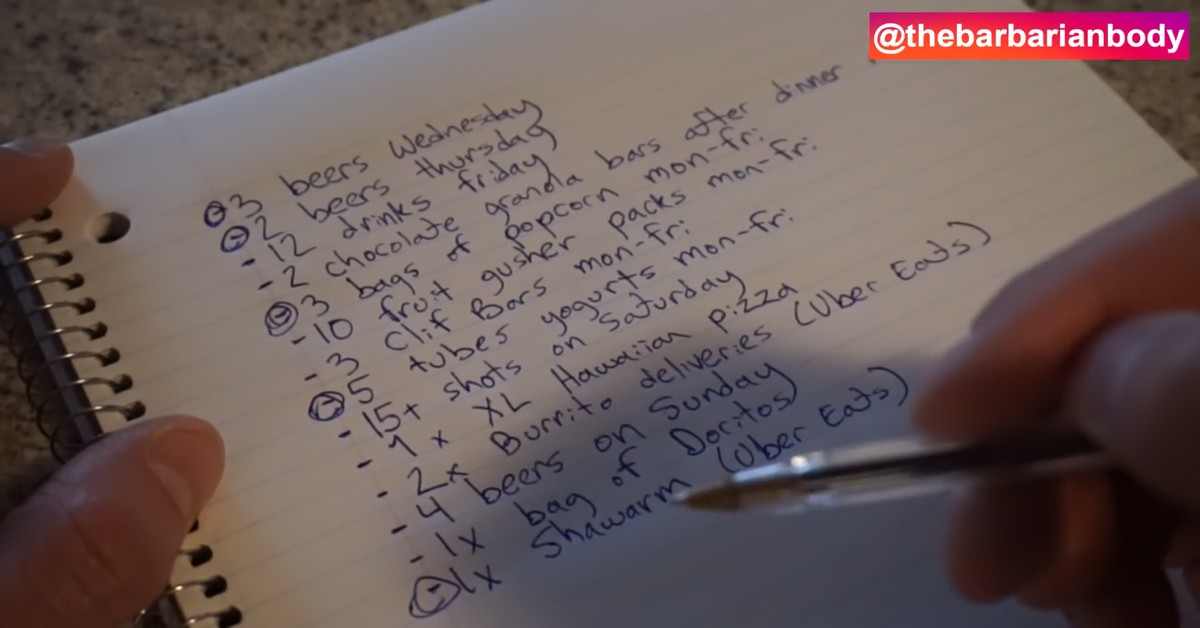 @thebarbarianbody
- 3 beers Wednesday
- 2 beers thursday
- 12 drinks friday
- 2 chocolate granola bars after dinner
- 3 bags of popcorn mon-fri
- 10 fruit gusher packs mon-fri
- 3 Clif Bars mon-fri
- 5 tubes yogurts mon-fri
- 15+ shots on Saturday
- 1 x XL Hawaiian pizza
- 2x Burrito deliveries (Uber Eats)
- 4 beers on Sunday
- 1x bag of Doritos
- 1x Shawarm (Uber Eats)